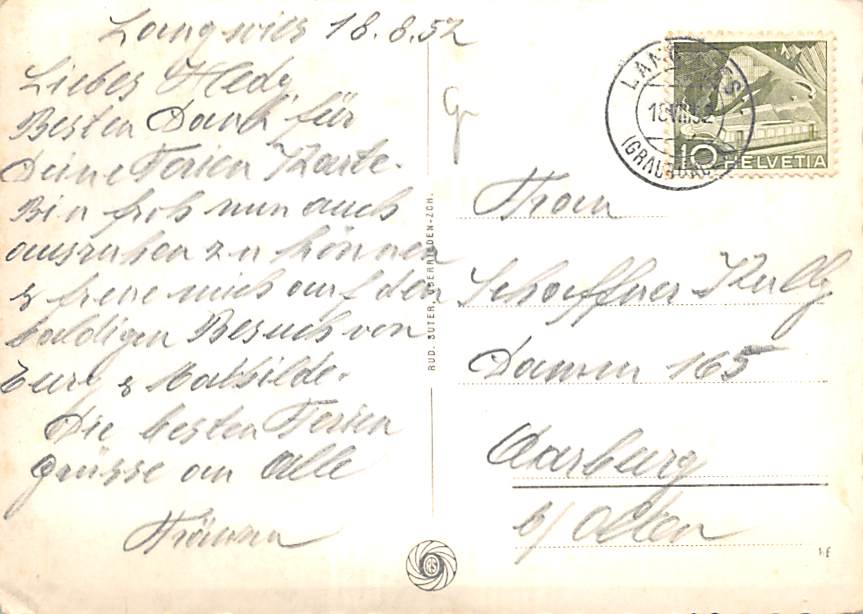 Langwies 18.8.52
Liebes Hedy.
Besten Dank für
Deine Ferien Karte.
Bin froh nun auch
auszuruhen zu können
& freue mich auf den
baldigen Besuch von
& Mathilde.
Die besten Ferien
grüsse an Alle
RUD. SUTER, OBERRIEDEN-ZCH.
LANGWIES
18.VIII.52
(GRAUBÜNDEN)
10 HELVETIA
Frau
Schaffner Kully
Dammm 165
Aarburg
b/Olten